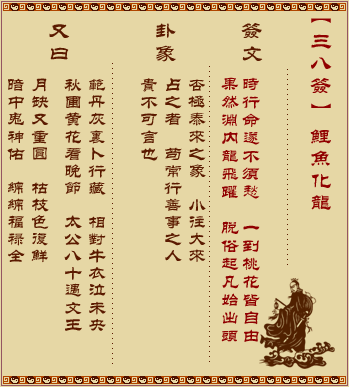 【三八簽】 鯉魚化龍
簽文
時行命遂不須愁 一到桃花皆自由
果然淵內龍飛躍 脫俗起凡始出頭
卦象
否極泰來之象 小往大來
占之者 苟常行善事之人
貴不可言也
又曰
範丹灰裏卜行藏 相對牛衣泣未央
秋圃黃花看晚節 太公八十遇文王
月缺又重圓 枯枝色復鮮
暗中鬼神佑 綿綿福祿全